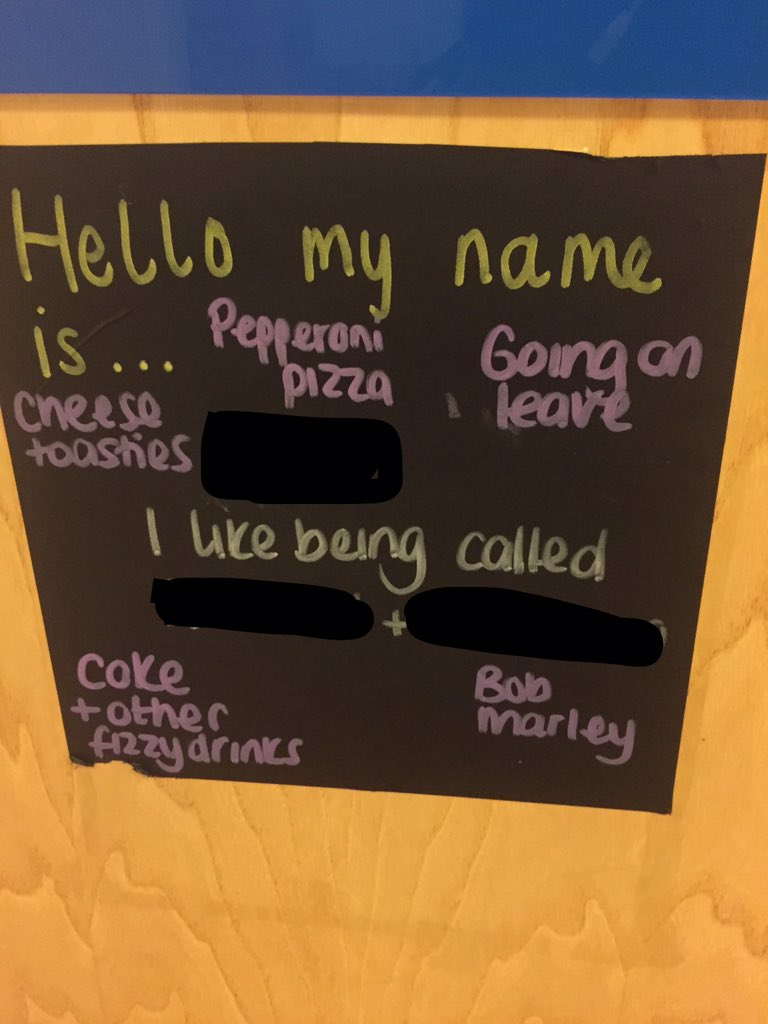 Hello my name
is...
Pepperoni
pizza
Going on
leave
cheese
toasties
I like being called
+
Coke
+ other
fizzy drinks
Bob
marley